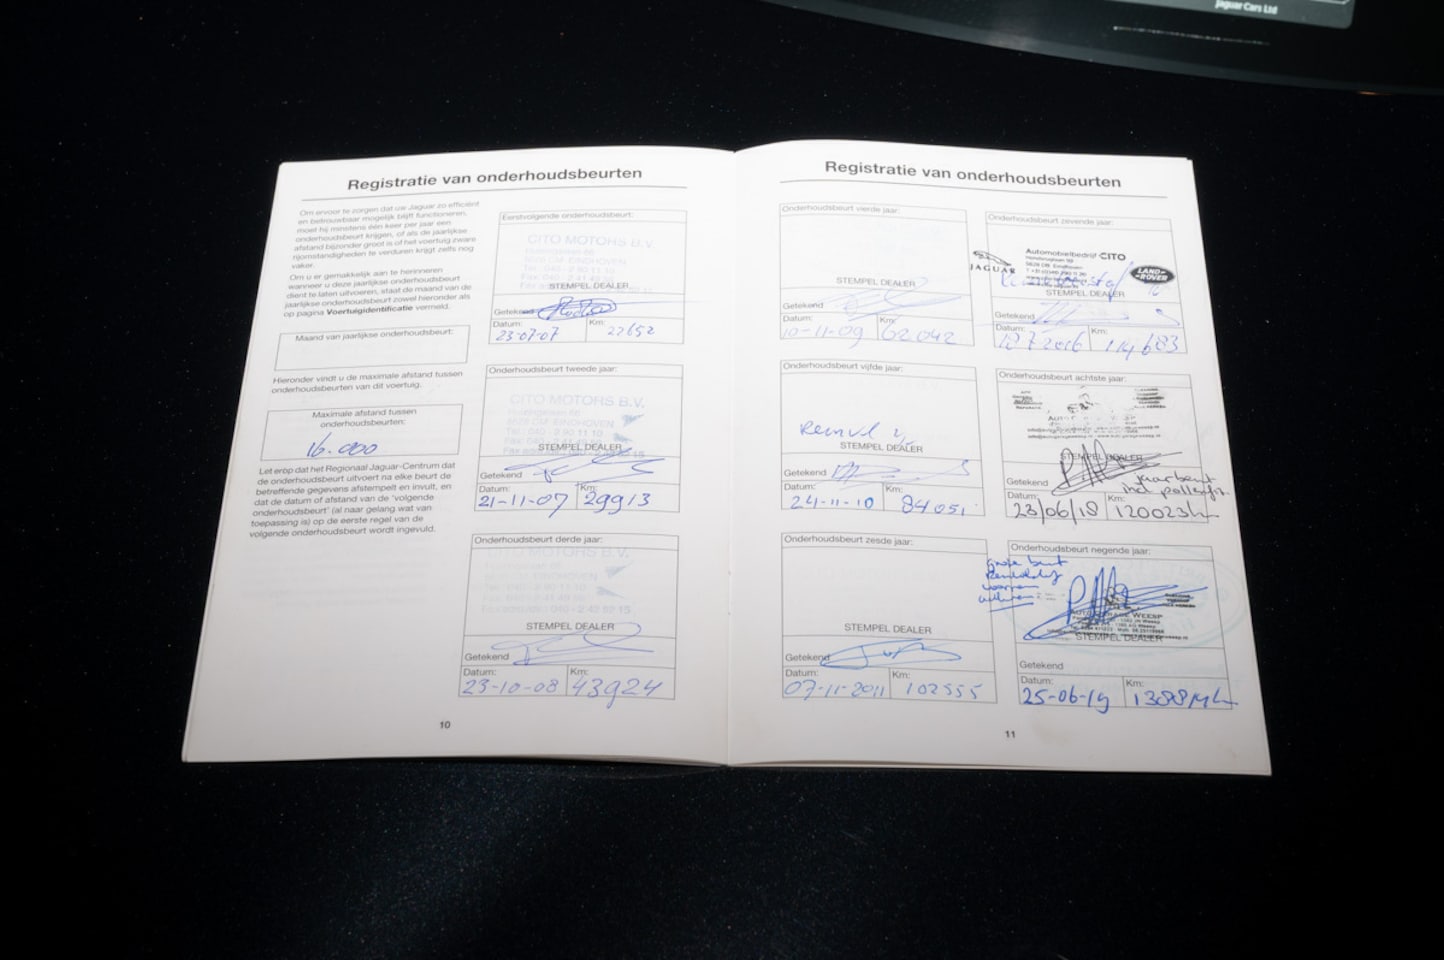 Jaguar Cars Ltd
Registratie van onderhoudsbeurten
Om ervoor te zorgen dat uw Jaguar zo efficiënt
en betrouwbaar mogelijk blijft functioneren,
moet hij minstens één keer per jaar een
onderhoudsbeurt krijgen, of als de jaarlijkse
afstand bijzonder groot is of het voertuig zware
rijomstandigheden te verduren krijgt zelfs nog
vaker.
Om u er gemakkelijk aan te herinneren
wanneer u deze jaarlijkse onderhoudsbeurt
dient te laten uitvoeren, staat de maand van de
jaarlijkse onderhoudsbeurt zowel hieronder als
op pagina Voertuigidentificatie vermeld.
Maand van jaarlijkse onderhoudsbeurt:
Hieronder vindt u de maximale afstand tussen
onderhoudsbeurten van dit voertuig.
Maximale afstand tussen
onderhoudsbeurten:
16.000
Let erop dat het Regionaal Jaguar-Centrum dat
de onderhoudsbeurt uitvoert na elke beurt de
betreffende gegevens afstempelt en invult, en
dat de datum of afstand van de 'volgende
onderhoudsbeurt' (al naar gelang wat van
toepassing is) op de eerste regel van de
volgende onderhoudsbeurt wordt ingevuld.
Eerstvolgende onderhoudsbeurt:
CITO MOTORS B.V.
EINDHOVEN
STEMPEL DEALER
Getekend
Datum: Km:
23-07-07 22652
Onderhoudsbeurt tweede jaar:
CITO MOTORS B.V.
EINDHOVEN
STEMPEL DEALER
Getekend
Datum: Km:
21-11-07 29913
Onderhoudsbeurt derde jaar:
CITO MOTORS B.V.
EINDHOVEN
STEMPEL DEALER
Getekend
Datum: Km:
23-10-08 43924
10
Registratie van onderhoudsbeurten
Onderhoudsbeurt vierde jaar:
STEMPEL DEALER
Getekend
Datum: Km:
10-11-09 62042
Onderhoudsbeurt vijfde jaar:
STEMPEL DEALER
Getekend
Datum: Km:
24-11-10 84051
Onderhoudsbeurt zesde jaar:
STEMPEL DEALER
Getekend
Datum: Km:
07-11-2011 102555
Onderhoudsbeurt zevende jaar:
JAGUAR
Automobielbedrijf CITO
LAND-ROVER
STEMPEL DEALER
Getekend
Datum: Km:
114683
Onderhoudsbeurt achtste jaar:
STEMPEL DEALER
Getekend
Jaarbeurt
Datum: Km:
23/06/18 120023
Onderhoudsbeurt negende jaar:
Grote beurt
WEESP
STEMPEL DEALER
Getekend
Datum: Km:
25-06-19
11